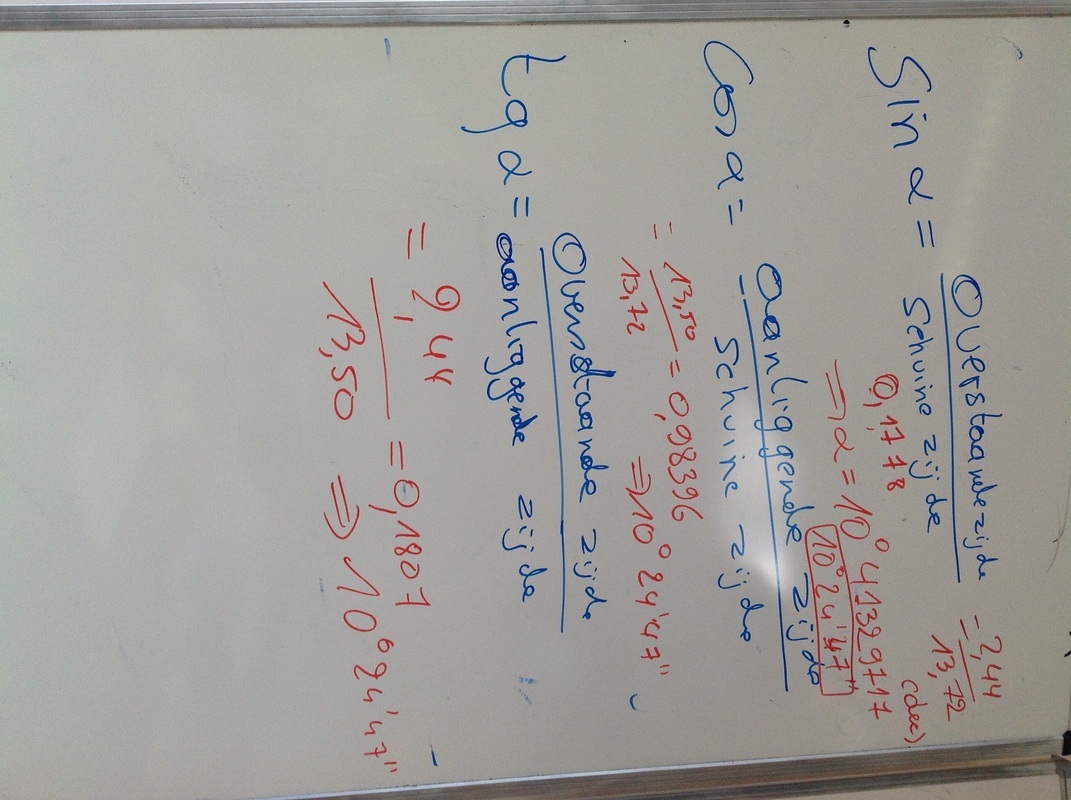 Sin α = Overstaande zijde = 2,44
Schuine zijde 13,72
0,1778
=> α = 10° 41329717 (dec)
10° 24' 47"
Cos α = aanliggende zijde
Schuine zijde
= 13,50 = 0,98396 => 10° 24' 47"
13,72
tg α = Overstaande zijde
aanliggende zijde
= 2,44 = 0,1807
13,50 => 10° 24' 47"